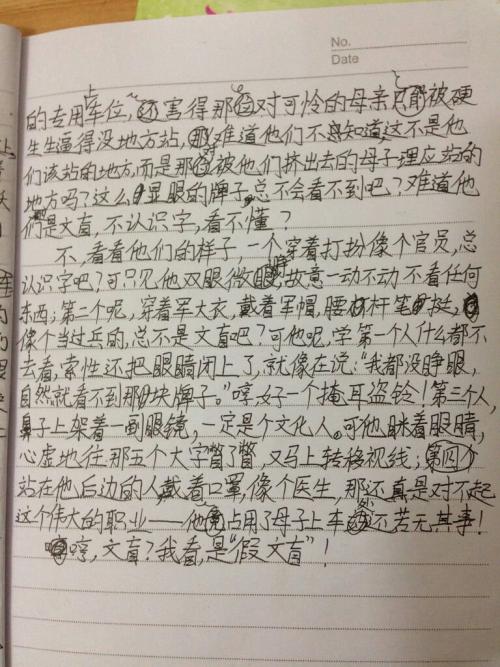 No.
Date
的专用车位,还害得那位对可怜的母亲只能被硬
上
生生逼得没地方站,难道他们不知道,这不是他
们该站的地方,而是那被他们挤出去的母子理应站的
地方吗?这么显眼的牌子,总不会看不到吧?难道他
们是文盲,不认识字,看不懂?
不,看看他们的样子,一个穿着打扮像个官员,总
认识字吧?可只见他双眼微睁,故意一动不动不看任何
东西;第二个呢,穿着军大衣,戴着军帽,腰杆笔挺,
像个当过兵的,总不是文盲吧?可他呢,学第一个人什么都不
去看,索性还把眼睛闭上了,就像在说:“我都没睁眼,
自然就看不到那块牌子。”哼,好一个掩耳盗铃!第三个人,
鼻子上架着一副眼镜,一定是个文化人。可他眯着眼睛,
心虚地往那五个大字瞥了瞥,又马上转移视线;第四个
站在他后边的人戴着口罩,像个医生,那还真是对不起
这个伟大的职业——他占用了母子上车处还若无其事!
哼,文盲?我看,是“假文盲”!